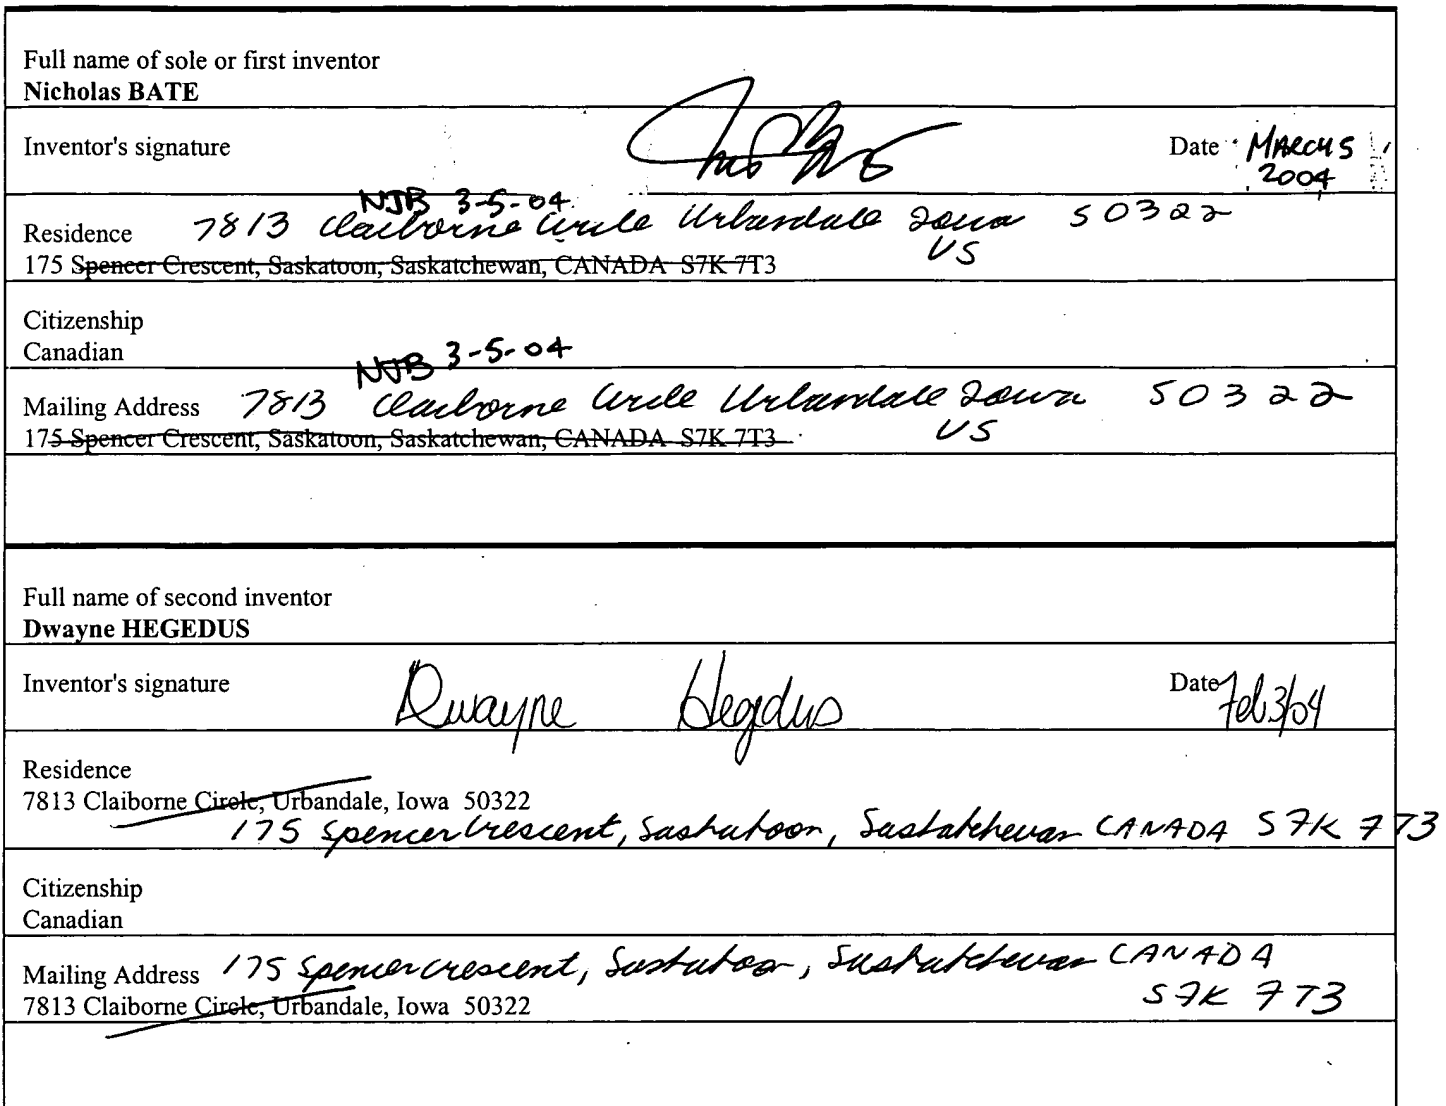 Full name of sole or first inventor
Nicholas BATE
Inventor's signature
Date MARCH 5
2004
NJB 3-5-04
Residence 7813 Claiborne Circle Urbandale Iowa 50322
US
175 Spencer Crescent, Saskatoon, Saskatchewan, CANADA S7K 7T3
Citizenship
Canadian
NJB 3-5-04
Mailing Address 7813 Claiborne Circle Urbandale Iowa 50322
US
175 Spencer Crescent, Saskatoon, Saskatchewan, CANADA S7K 7T3
Full name of second inventor
Dwayne HEGEDUS
Inventor's signature Dwayne Hegedus Date Feb 3/04
Residence
7813 Claiborne Circle, Urbandale, Iowa 50322
175 Spencer Crescent, Saskatoon, Saskatchewan CANADA S7K 7T3
Citizenship
Canadian
Mailing Address 175 Spencer crescent, Saskatoon, Saskatchewan CANADA
S7K 7T3
7813 Claiborne Circle, Urbandale, Iowa 50322